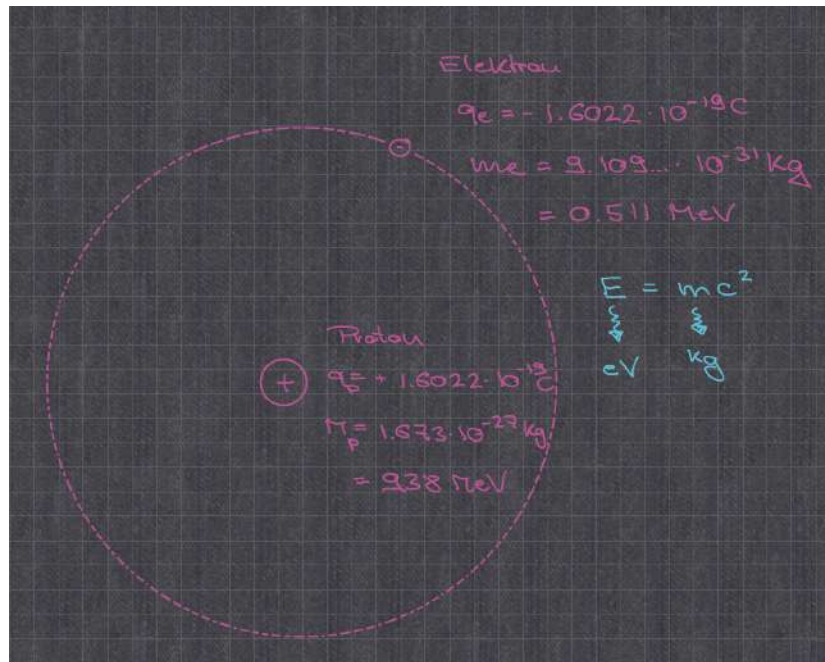 Elektron
qe = - 1.6022 · 10^-19 C
me = 9.109... · 10^-31 kg
= 0.511 MeV
E = mc²
eV kg
Proton
qp = + 1.6022 · 10^-19 C
Mp = 1.673 · 10^-27 kg
= 938 MeV
+
-